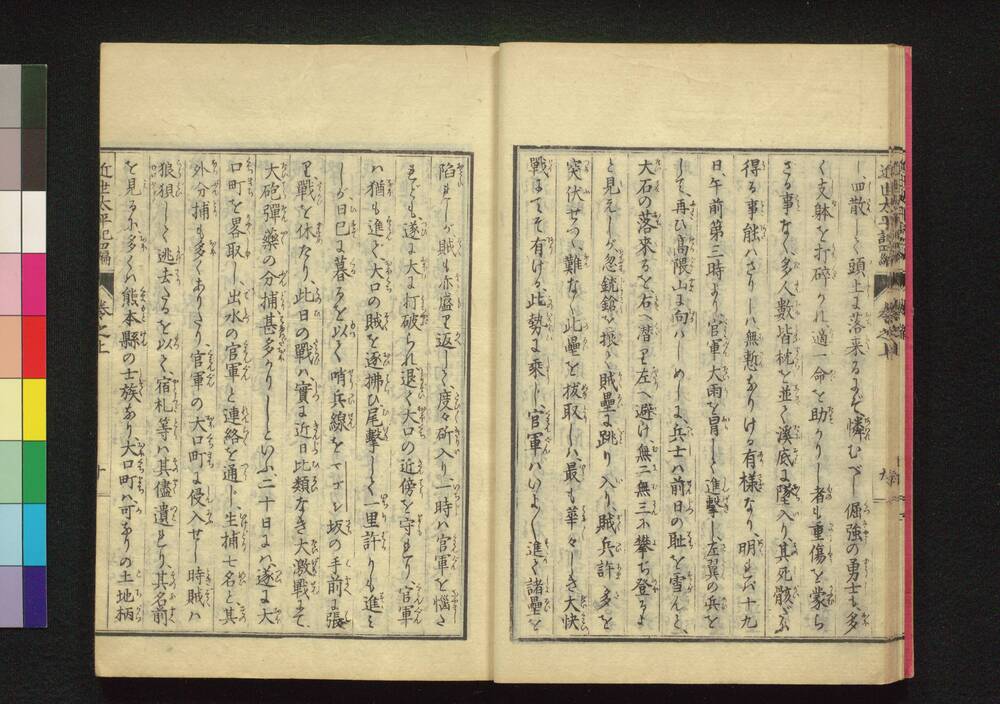 し四散して頭上に落来るにぞ憐むべし倔強の勇士も多
く支躰を打碎かれ適一命を助かりし者も重傷を蒙ら
ざる事なく多人數皆枕を並て溪底に墜入り其死骸だに
得る事能はざりしハ無慙なりける有様なり明れバ十九
日午前第三時より官軍大雨を冒して進撃し左翼の兵を
して再び高隈山に向ハしめしに兵士ハ前日の耻を雪んと
大石の落來るを右へ潜り左へ避け無二無三に攀ぢ登るよ
と見えしが忽銃鎗を振て賊壘に跳り入り賊兵許多を
突伏せつゝ難なく此壘を拔取しハ最も華々しき大快
戰にてぞ有ける此勢に乘じ官軍ハいよ〳〵進て諸壘を
近世太平記四編 巻之上 九
陷れしが賊も亦盛り返して度々斫入り一時ハ官軍を惱さ
れども遂に大に打破られ退て大口の近傍を守れり官軍
ハ猶も進て大口の賊を逐拂ひ尾撃して一里許りも進み
しが日已に暮るを以て哨兵線を坂の手前に張
り戰を休たり此日の戰ハ實に近日比類なき大激戰にて
大砲彈藥の分捕甚多かりしといふ二十日にハ遂に大
口町を畧取し出水の官軍と連絡を通じ生捕七名と其
外分捕も多くありたり官軍の大口町に侵入せし時賊ハ
狼狽して逃去たるを以て宿札等ハ其儘遺れり其名前
を見るに多くハ熊本縣の士族なり大口町ハ可なりの土地柄
近世太平記四編 巻之上 十